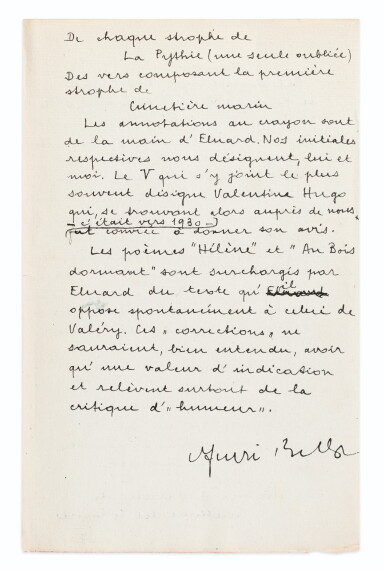 De chaque strophe de
La Pythie (une seule oubliée)
Des vers composant la première
strophe de
Cimetière marin
Les annotations au crayon sont
de la main d'Eluard. Nos initiales
respectives nous désignent, lui et
moi. Le V qui s'y joint le plus
souvent désigne Valentine Hugo
qui, se trouvant alors auprès de nous,
— c'était vers 1930 —
fut conviée à donner son avis.
Les poèmes "Hélène" et "Au Bois
dormant" sont surchargés par
Eluard du texte qu'il
oppose spontanément à celui de
Valéry. Ces „corrections„ ne
sauraient, bien entendu, avoir
qu'une valeur d'indication
et relèvent surtout de la
critique d'„humeur„.